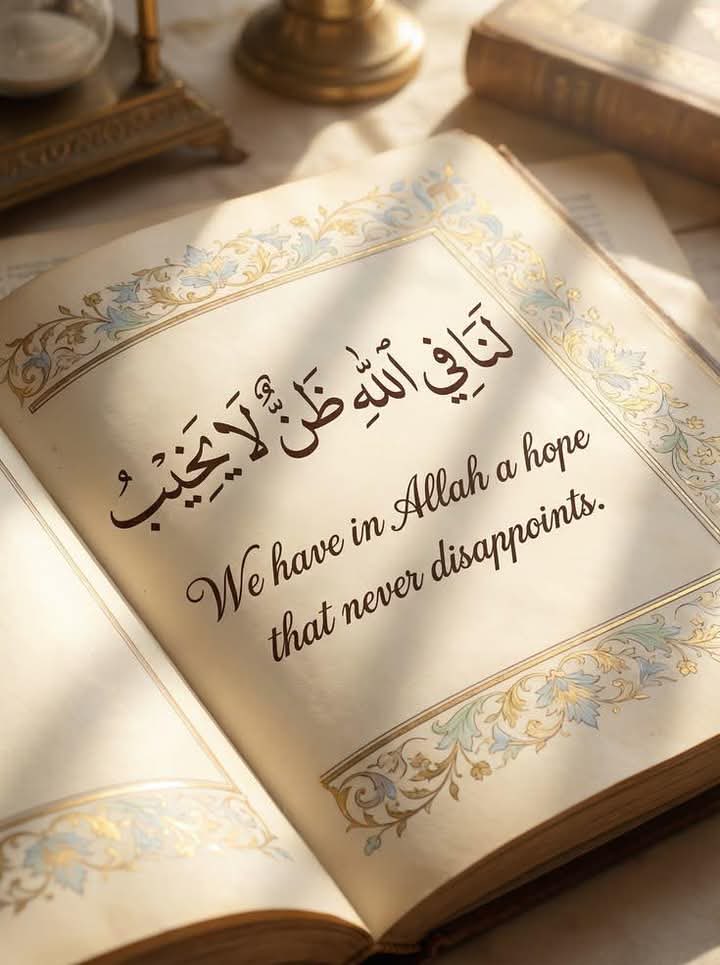 لَنَا فِي اللَّهِ ظَنٌّ لَا يَخِيْبُ
We have in Allah a hope
that never disappoints.